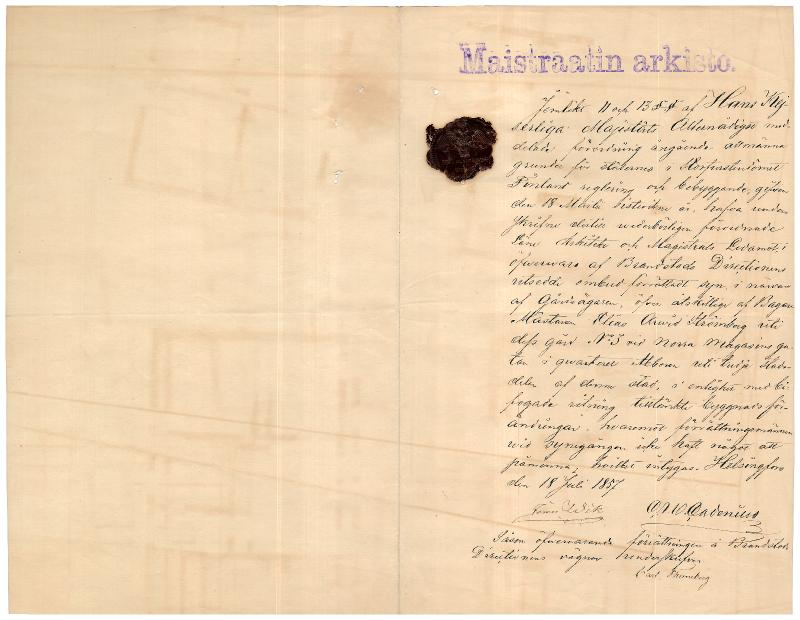 Maistraatin arkisto.
Jemlikt 11 och 13 §§ af Hans Kej-
serliga Majestäts Allernådigst med-
delade förordning angående allmänna
grunder för städernes i Storfurstendömet
Finland reglering och bebyggande, gifven
den 18 Martii sistledne år, hafva under-
skrifne dertill wederbörligen förordnade
Läns Arkitekt och Magistrats Ledamot, i
öfverwaro af Brandstods Directionens
utsedde ombud förrättadt syn, i närvaro
af Gårdsägaren, öfver åtskillige af Bagare
Mästaren Elias Arvid Strömberg uti
dess gård No 3 vid Norra Magasins ga-
tan i qvarteret uti tredje Stads-
delen af denna stad, i enlighet med bi-
fogade ritning tillärkte byggnads för-
ändringar, hvaremot förrättningsmännen
wid synegången icke haft något att
påminna, hvilket intygas. Helsingfors
den 18 Juli 1857
C. W. Gadenius
Såsom öfvervarande förrättningen å Brandstods
Directionens vägnar underskrifver
Carl